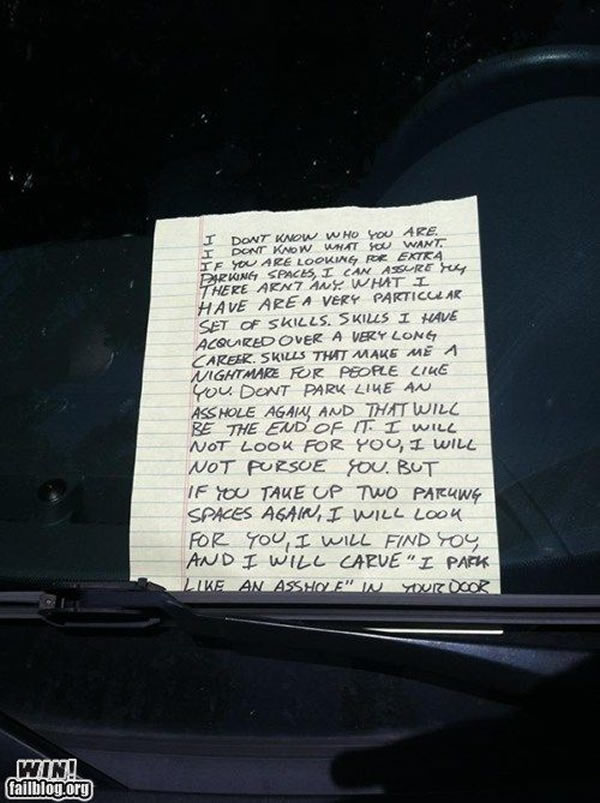 I DONT KNOW WHO YOU ARE.
I DONT KNOW WHAT YOU WANT.
IF YOU ARE LOOKING FOR EXTRA
PARKING SPACES, I CAN ASSURE YOU
THERE ARNT ANY. WHAT I
HAVE ARE A VERY PARTICULAR
SET OF SKILLS. SKILLS I HAVE
ACQUIRED OVER A VERY LONG
CAREER. SKILLS THAT MAKE ME A
NIGHTMARE FOR PEOPLE LIKE
YOU. DONT PARK LIKE AN
ASSHOLE AGAIN, AND THAT WILL
BE THE END OF IT. I WILL
NOT LOOK FOR YOU, I WILL
NOT PURSUE YOU. BUT
IF YOU TAKE UP TWO PARKING
SPACES AGAIN, I WILL LOOK
FOR YOU, I WILL FIND YOU,
AND I WILL CARVE "I PARK
LIKE AN ASSHOLE" IN YOUR DOOR
WIN!
failblog.org